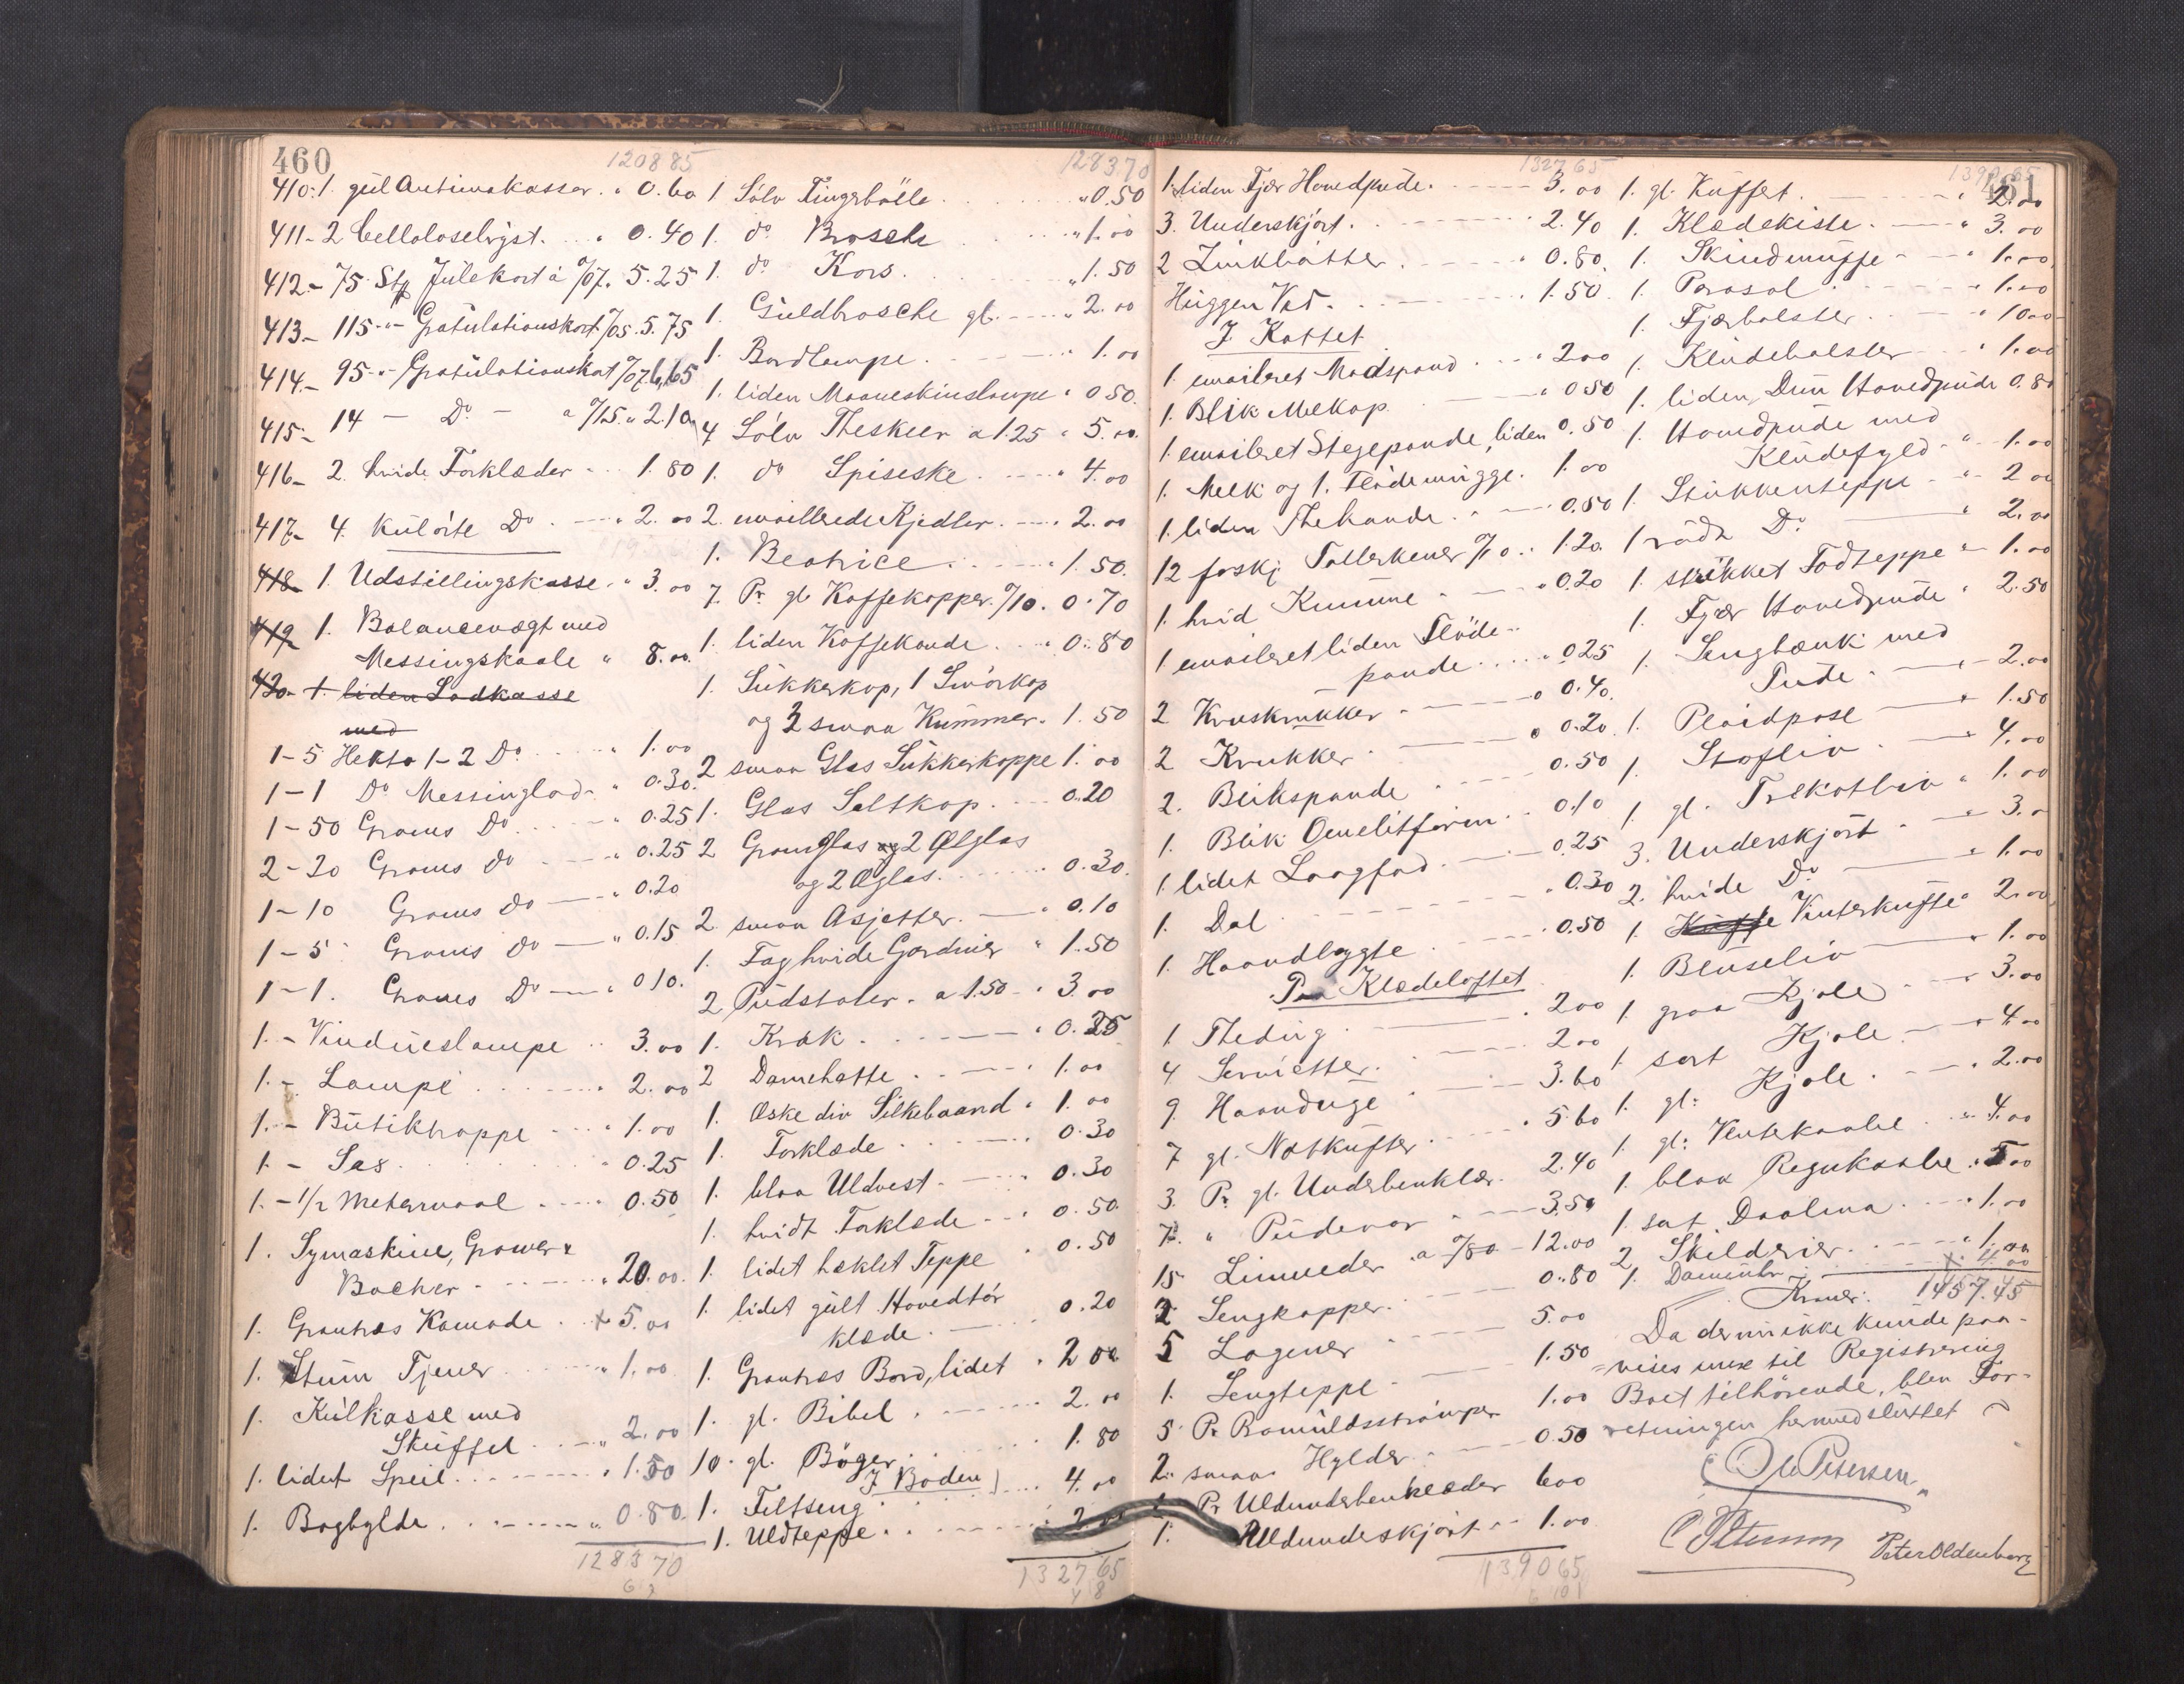 460
120885
410. 1. gul Antimakassar. " 0.60
411 - 2 Cellolosebryst. " 0.40
412 - 75 Stk Julekort à 0/07. 5.25
413 - 115 - " - Gratulationskort 0/05. 5.75
414 - 95 - " Gratulationskort 0/07 6.65
415 - 14 - Do - a 0/15 " 2.10
416 - 2. hvide Forklæder " 1.80
417 - 4. kulörte Do. " 2.00
418 1. Udstillingskasse. " 3.00
419 1. Balancevægt med
Messingskaale " 8.00.
420 - 1. liden Lodkasse
med
1 - 5 Hekto 1 - 2 Do " 1.00
1 - 1 Do Messinglod " 0.30.
1 - 50 Grams Do " 0.25
2 - 20 Grams Do " 0.25
1 - 10 Grams Do " 0.20
1 - 5 Grams Do " 0.15
1 - 1. Grams Do " 0.10.
1. - Vindueslampe " 3.00
1. - Lampe " 2.00
1. - Butiktrappe " 1.00
1. - Sax " 0.25
1. - 1/2 Metermaal " 0.50
1. Symaskine, Grower &
Backer " 20.00.
1. Grantræs Komode + 5.00
1. Stum Tjener " 1.00
1. Kulkasse med
Skuffel " 2.00
1. lidet Speil " 1.50
1. Boghylde " 0.80.
128370
128370
1 Sölv Fingerbölle " 0.50
1. do Brosche " 1.00
1. do Kors. " 1.50
1. Guldbrosche gl. " 2.00
1. Bordlampe " 1.00
1. liden Maaneskinslampe " 0.50.
4 Sölv Theskeer a 1.25 " 5.00.
1. do Spiseske " 4.00
2. emaillerede Kjedler " 2.00
1. Beatrice " 1.50.
7. Pr. gl. Kaffekopper. 0/10. 0.70
1. liden Kaffekande " 0.80
1. Sukkerkop, 1 Smörkop
og 2 smaa Kummer. 1.50
2 smaa Glas Sukkerkoppe 1.00
1. Glas Saltkop. 0.20
2 Gramglas og 2 Ölglas
og 2 Æglas. 0.30.
2 smaa Asjetter. " 0.10
1. Fag hvide Gardiner " 1.50
2 Pudstater. a 1.50 " 3.00
1. Krak " 0.25
2 Damehatte " 1.00
1. Æske div Silkebaand " 1.00
1. Forklæde " 0.30
1. blaa Uldvest " 0.30
1. hvidt Forklæde " 0.50.
1. lidet heklet Teppe " 0.50
1. lidet gult Hovedtör
klæde " 0.20
1. Grantræs Bord, lidet " 2.00
1. gl. Bibel " 2.00
10. gl. Böger 1.80
I Boden
1. Feltseng 4.00
1. Uldteppe 2.00
132765
461
132765
1. liden Fjær Hovedpude. 3.00
3. Underskjört. 2.40
2 Zinkbötter " 0.80.
Huggen Ved. " 1.50.
I Kottet
1. emaileret Madspand " 2.00
1. Blik Melkop " 0.50
1. emaileret Stegepande, liden 0.50
1. Melk og 1. Flödemugge. 1.00
1. liden Thekande " 0.50
12 forskj Tallerkener 0/10 " 1.20
1. hvid Kumme " 0.20
1 emaileret liden Flöde-
pande " 0.25
2 Kruskrukker " 0.40.
2 Krukker " 0.20.
2. Blikspande 0.50
1. Blik Omelitform " 0.10
1. lidet Laagfad 0.25
1. Dal " 0.30
1. Haandlygte " 0.50
Paa Klædeloftet
1 Thedug " 2.00
4 Servietter. 2.00
9. Haanduge 3.60
7 gl. Natkufter " 5.60
3. Pr. gl. Underbenklær. 2.40
7. " Pudevar 3.50
15 Linneder a 0/80 12.00
2 Sengkapper. 0.80
5 Lagener 5.00
1. Sengteppe 1.50
5 Pr. Bomuldsströmper 1.00
2. smaa Hylder 0.50
Pr Uldunderbenklæder 6.00
1. Uldunderskjört " 1.00
139065
139065
1. gl. Kuffert. " 2.00
1. Klædekiste. " 3.00
1. Skindmuffe " 1.00
1. Parasol " 1.00
1. Fjærbolster " 10.00
1. Kludebolster " 1.00
1. liden Dun Hovedpude 0.80
1. Hovedpude med
Kludefyld " 1.00
1. Stukkenteppe " 2.00
1 röd Do " 2.00
1. strikket Fodteppe " 1.00
1. Fjær Hovedpude " 2.50
1. Sengbænk med
Pude " 2.00
1. Plaidpose " 1.50
1. Stofliv " 4.00
1. gl. Trekotliv " 1.00
3. Underskjört " 3.00
2. hvide Do " 1.00
1. Kuffe Vinterkufte " 2.00
1. Bluseliv " 1.00
1. graa Kjole " 3.00
1. sort Kjole " 4.00
1. gl. Kjole " 2.00
1. gl. Vinterkaabe " 4.00
1. blaa Regnkaabe " 5.00
1. sat. Daalma " 1.00
2 Skilderier " 1.00
1. Dameuhr + 4.00
Kroner. 1457.45
Da der nu ikke kunde paa-
=vises mere til Registrering
Boet tilhörende, blev For-
retningen hermed sluttet
Ole Petersen
C Petersen Peter Oldenborg